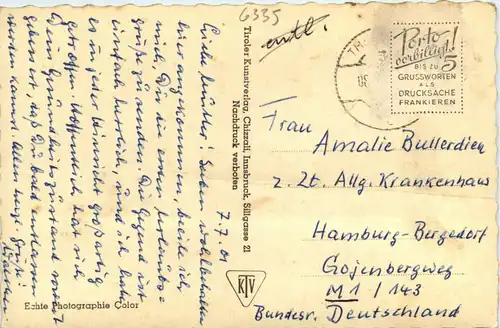 6335
entl.
7.7.61
Liebe Mutter! Soeben wohlbehalten
hier angekommen, beeile ich
mich, Dir die ersten Urlaubs-
grüße zu senden. Die Gegend ist
einfach herrlich, und ich habe
es in jeder Hinsicht großartig
getroffen. Hoffentlich hat sich
Dein Gesundheitszustand soweit
gebessert, daß Du bald entlassen
werden kannst. Alles
Tiroler Kunstverlag, Chizzali, Innsbruck, Sillgasse 21
Nachdruck verboten
KTV
Echte Photographie Color
Porto
verbilligt!
BIS ZU 5
GRUSSWORTEN
ALS
DRUCKSACHE
FRANKIEREN
Frau Amalie Bullerdiek
z. Zt. Allg. Krankenhaus
Hamburg-Bergedorf
Gojenbergweg
M1 / 143
Bundesr. Deutschland